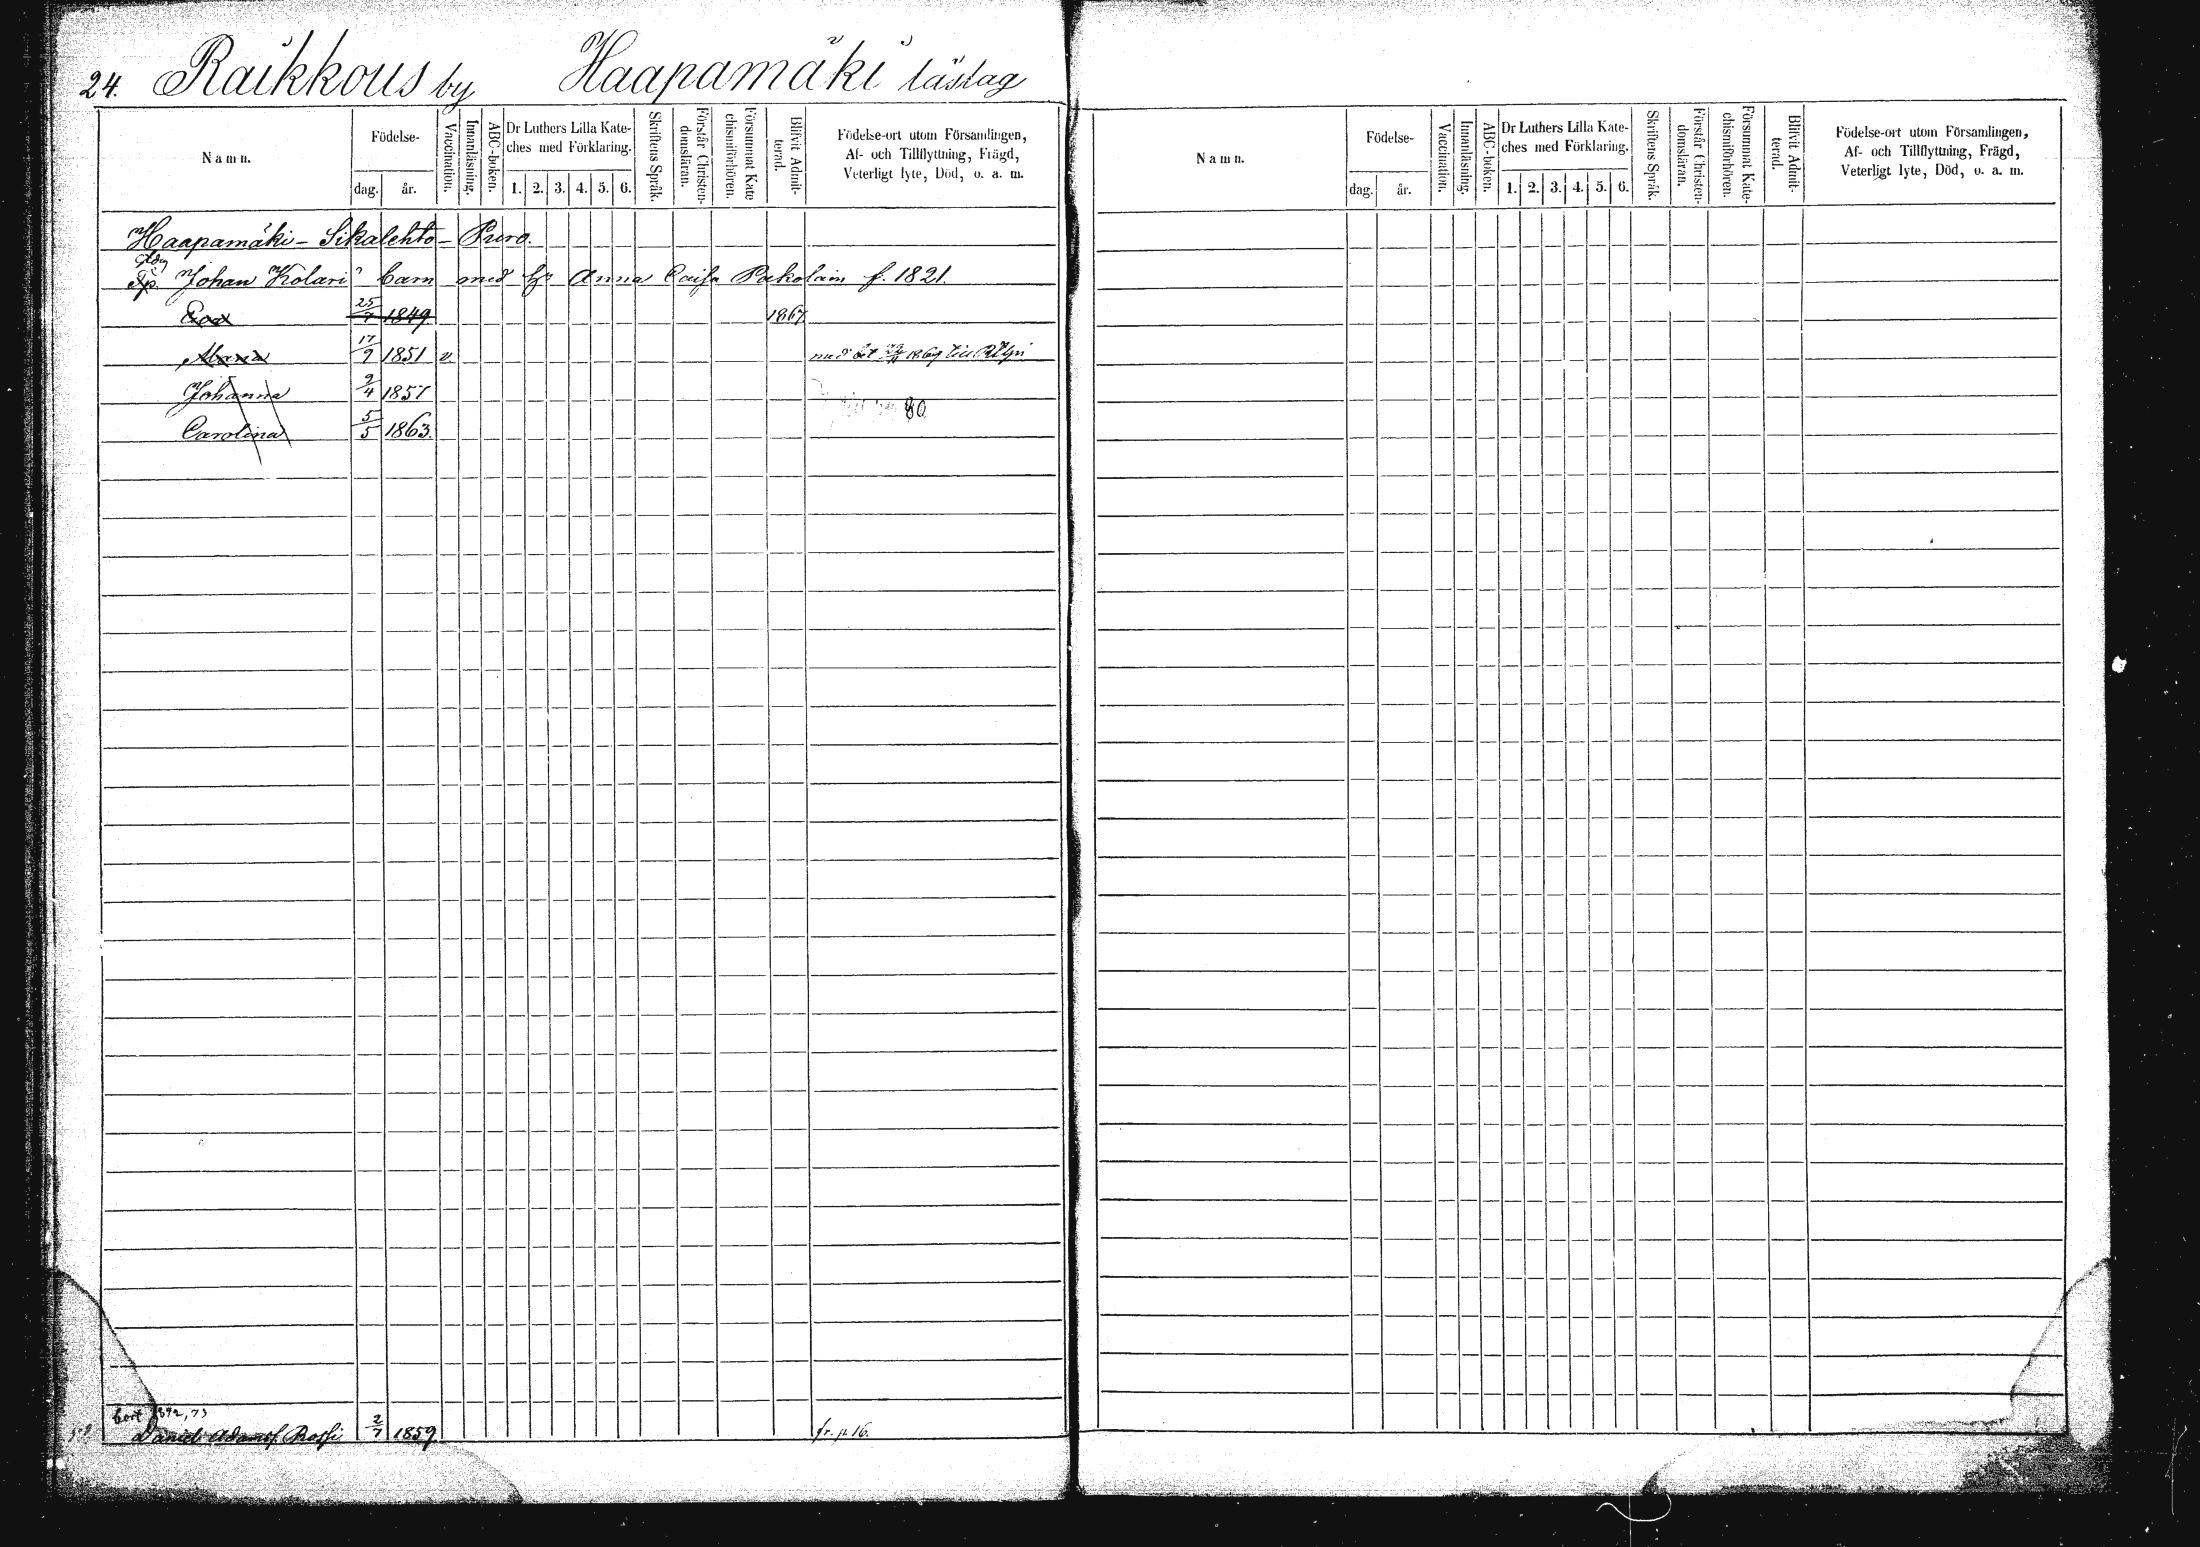 24. Raikkous by Haapamäki läslag
Namn. Födelse- dag. år. Vaccination. Innanläsning. ABC-boken. Dr Luthers Lilla Kateches med Förklaring. 1. 2. 3. 4. 5. 6. Skriftens Språk. Förstår Christendomsläran. Försummat Katechismiförhören. Blifvit Admitterad. Födelse-ort utom Församlingen, Af- och Tillflyttning, Frägd, Veterligt lyte, Död, o. a. m.
Haapamäki - Sikalehto - Puro.
Tp. Johan Kolari barn med h: Anna Caisa Pokolain f. 1821.
Eva 25/7 1849 1867
Maria 17/9 1851 v. med bet 1869 till
Johanna 9/4 1857
80
Carolina 5/5 1863.
bort 1892, 73
Daniel Adamsf. Rossi 2/7 1859. fr. p 16.
Namn. Födelse- dag. år. Vaccination. Innanläsning. ABC-boken. Dr Luthers Lilla Kateches med Förklaring. 1. 2. 3. 4. 5. 6. Skriftens Språk. Förstår Christendomsläran. Försummat Katechismiförhören. Blifvit Admitterad. Födelse-ort utom Församlingen, Af- och Tillflyttning, Frägd, Veterligt lyte, Död, o. a. m.